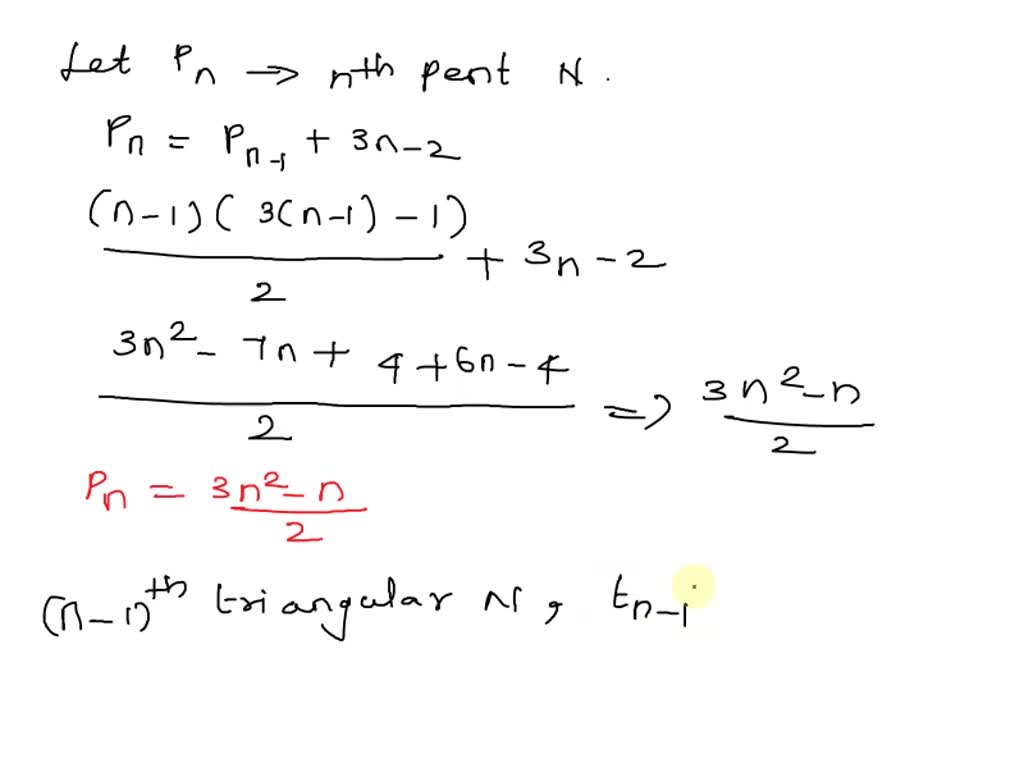 Let Pn → nth pent N.
Pn = Pn-1 + 3n-2
(n-1)(3(n-1)-1)/2 + 3n-2
3n²-7n+4+6n-4/2 => 3n²-n/2
Pn = 3n²-n/2
(n-1)th triangular N, tn-1